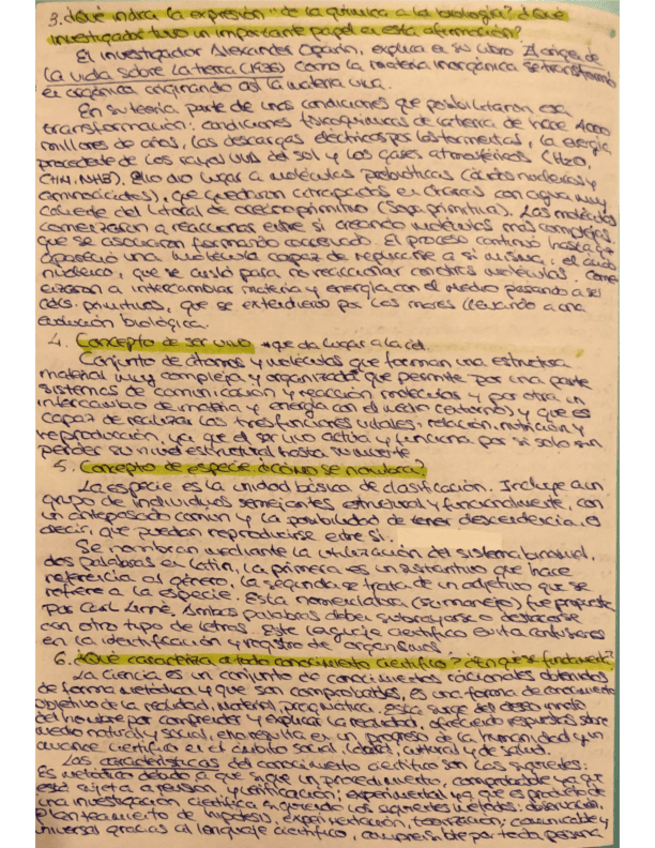 3. ¿Qué indica la expresión "de la química a la biología"? ¿Qué
investigador tuvo un importante papel en esta afirmación?
El investigador Alexander Oparin, explica en su libro El origen de
la vida sobre la tierra (1936) como la materia inorgánica se transformó
en orgánica originando así la materia viva.
En su teoría parte de unas condiciones que posibilitaron esa
transformación: condiciones fisicoquímicas de la tierra de hace 4000
millones de años, las descargas eléctricas por las tormentas, la energía
procedente de los rayos UVA del sol y los gases atmosféricos (H2O,
CH4, NH3). Ello dio lugar a moléculas prebióticas (ácidos nucleicos y
aminoácidos), que quedaron atrapadas en charcas con agua muy
caliente del litoral de océano primitivo (Sopa primitiva). Las moléculas
comenzaron a reaccionar entre sí creando moléculas más complejas,
que se asociaron formando coacervado. El proceso continuó hasta que
apareció una molécula capaz de replicarse a sí misma, el ácido
nucleico, que se aisló para no reaccionar con otras moléculas. Come
nzaron a intercambiar materia y energía con el medio pasando a ser
céls. primitivas, que se extendieron por los mares llevando a una
evolución biológica.
4. Concepto de ser vivo → que da lugar a la cél.
Conjunto de átomos y moléculas que forman una estructura
material muy compleja y organizada que permite por una parte
sistemas de comunicación y reacción moléculas y por otra un
intercambio de materia y energía con el medio (externo) y que es
capaz de realizar las tres funciones vitales: relación, nutrición y
reproducción, ya que el ser vivo actúa y funciona por sí solo sin
perder su nivel estructural hasta su muerte
5. Concepto de especie ¿cómo se nombra?
La especie es la unidad básica de clasificación. Incluye a un
grupo de individuos semejantes estructural y funcionalmente, con
un antepasado común y la posibilidad de tener descendencia, es
decir, que puedan reproducirse entre sí.
Se nombran mediante la utilización del sistema binomial,
dos palabras en latín, la primera es un sustantivo que hace
referencia al género, la segunda se trata de un adjetivo que se
refiere a la especie. Esta nomenclatura (su manejo) fue propuesta
por Carl Linné. Ambas palabras deben subrayarse o destacarse
con otro tipo de letras. Este lenguaje científico evita confusiones
en la identificación y registro de organismos
6. ¿Qué caracteriza a todo conocimiento científico? ¿En qué se fundamenta?
La ciencia es un conjunto de conocimientos racionales obtenidos
de forma metódica y que son comprobables, es una forma de conocimiento
objetivo de la realidad, material, pragmática. Esta surge del deseo innato
del hombre por comprender y explicar la realidad, ofreciendo respuestas sobre
medio natural y social, ello resulta en un progreso de la humanidad y un
avance científico en el ámbito social, cultural y de salud.
Las características del conocimiento científico son las siguientes:
Es metódico debido a que sigue un procedimiento, comprobable ya que
está sujeta a revisión y verificación; experimental ya que es producto de
una investigación científica siguiendo los siguientes métodos: observación,
planteamiento de hipótesis, experimentación, teorización; comunicable y
universal gracias al lenguaje científico, comprensible por toda persona,